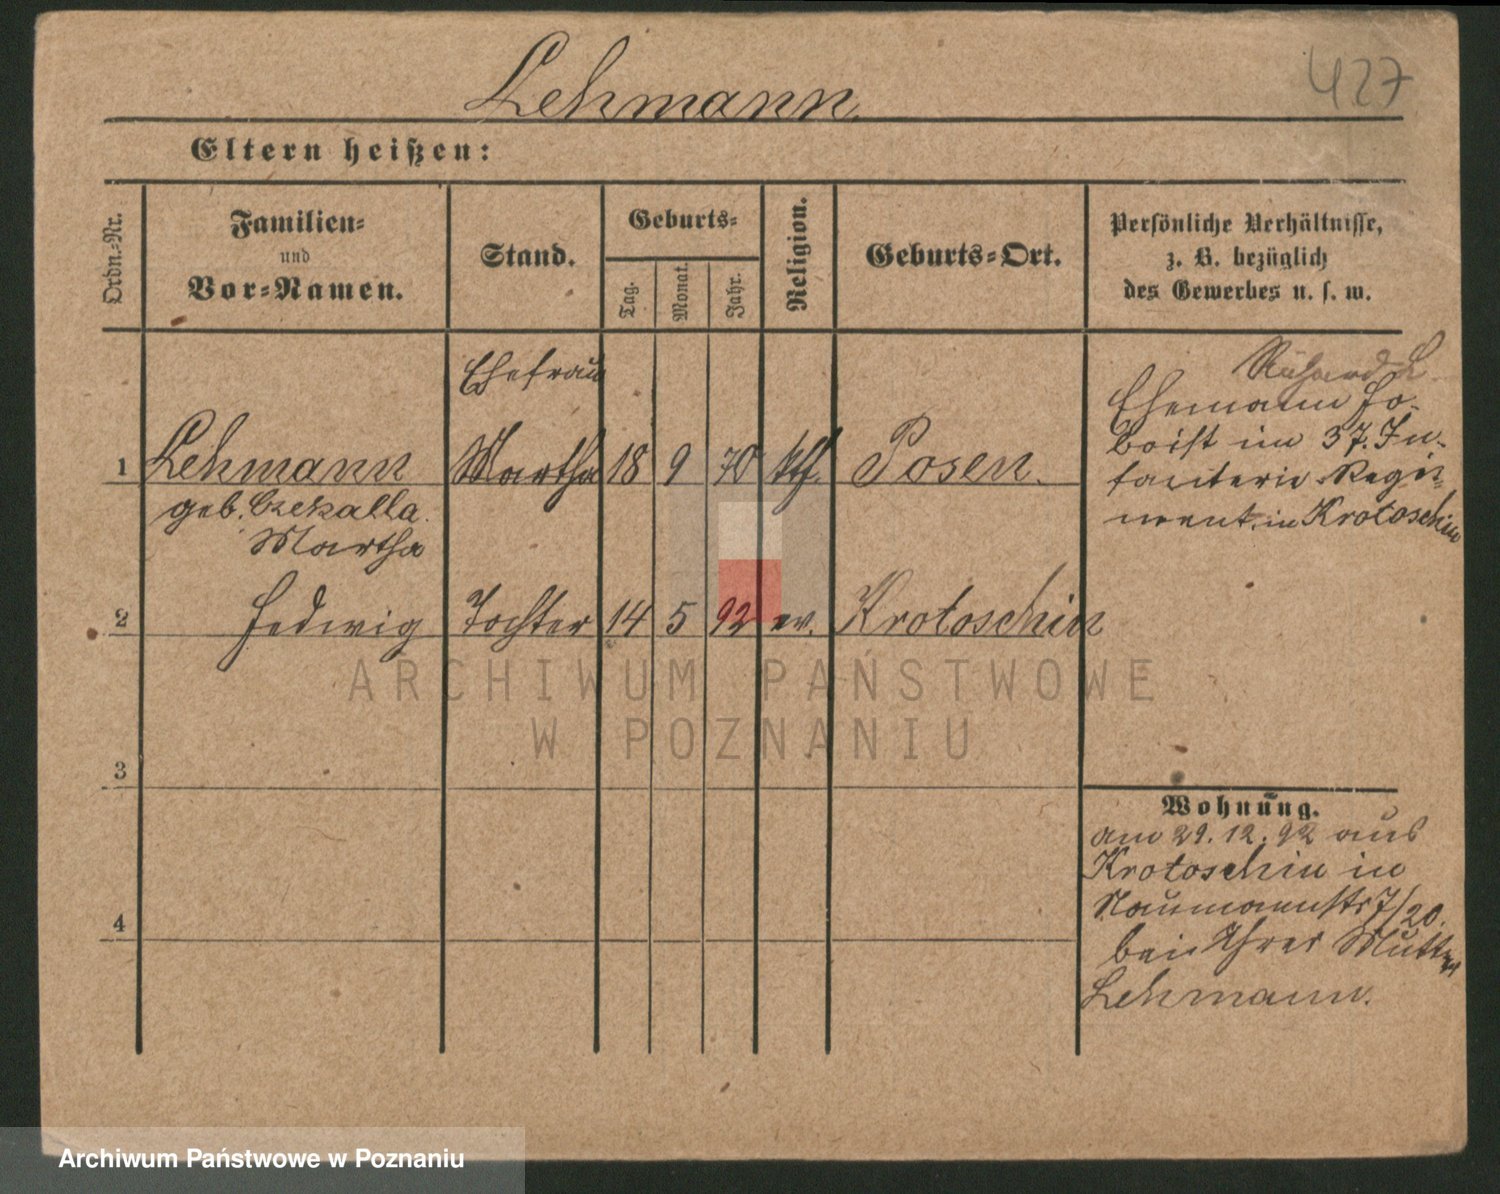 Lehmann
427
Eltern heißen:
Ordn.-Nr.
Familien-
und
Vor-Namen.
Stand.
Geburts-
Tag.
Monat.
Jahr.
Religion.
Geburts-Ort.
Persönliche Verhältnisse,
z. B. bezüglich
des Gewerbes u. s. w.
Ehefrau
1 Lehmann Martha 18 9 70 kth. Posen.
geb. Czekalla
Martha
2 Hedwig Tochter 14 5 92 ev. Krotoschin
3
4
Richard L
Ehemann Ho-
boist im 37. In-
fanterie Regi-
ment. in Krotoschin
Wohnung.
am 29.12.92 aus
Krotoschin in
Naumannstr 7/20.
bei Ihrer Mutter
Lehmann.
ARCHIWUM PAŃSTWOWE
W POZNANIU
Archiwum Państwowe w Poznaniu